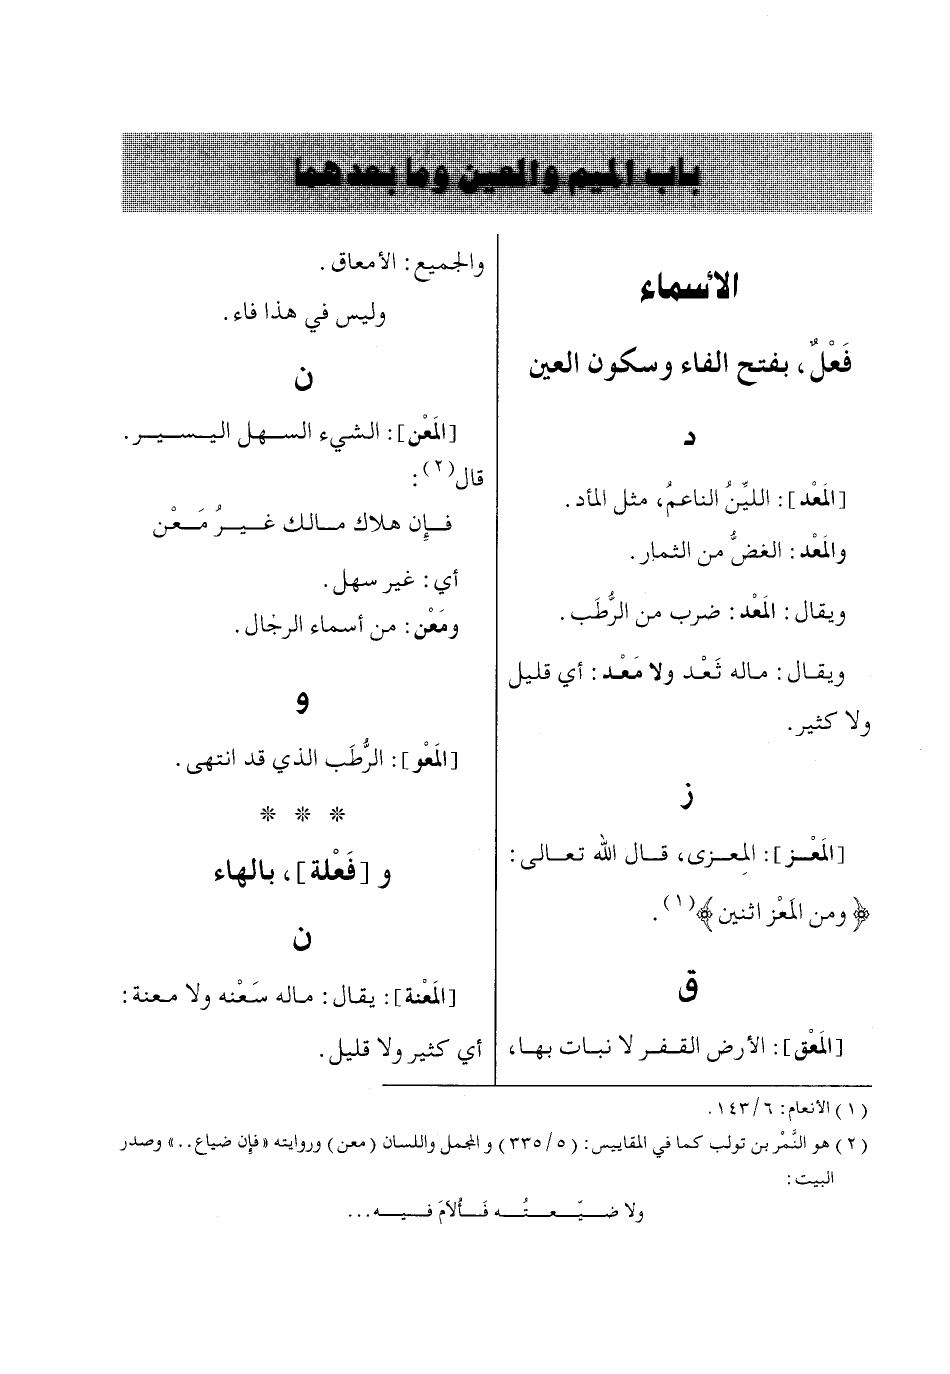 باب الميم والعين وما بعدهما
الأسماء
فَعْلٌ، بفتح الفاء وسكون العين
د
[المَعْد]: الليِّنُ الناعمُ، مثل المأد.
والمَعْد: الغضُّ من الثمار.
ويقال: المَعْد: ضرب من الرُّطَب.
ويقال: ماله ثَعْد ولا مَعْد: أي قليل
ولا كثير.
ز
[المَعْز]: المعزى، قال الله تعالى:
﴿ومن المَعْز اثنين﴾(١).
ق
[المَعْق]: الأرض القفر لا نبات بها،
والجميع: الأمعاق.
وليس في هذا فاء.
ن
[المَعْن]: الشيء السهل اليسير.
قال(٢):
فإن هلاك مالك غيرُ مَعْن
أي: غير سهل.
ومَعْن: من أسماء الرجال.
و
[المَعْو]: الرُّطَب الذي قد انتهى.
* * *
و [فَعْلة]، بالهاء
ن
[المَعْنة]: يقال: ماله سَعْنه ولا معنة:
أي كثير ولا قليل.
(١) الأنعام: ٦/١٤٣.
(٢) هو النَّمْر بن تولب كما في المقاييس: (٥/٣٣٥) و المجمل واللسان (معن) وروايته «فإن ضياع..» وصدر
البيت:
ولا ضيّعتُه فأُلاَمَ فيه...